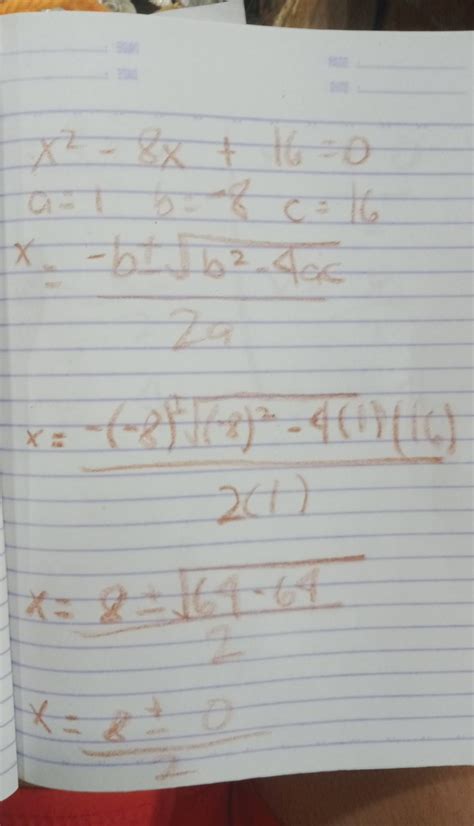 x² - 8x + 16 = 0
a = 1 b = -8 c = 16
x = -b ± √b² - 4ac
2a
x = -(-8) ± √(-8)² - 4(1)(16)
2(1)
x = 8 ± √64 - 64
2
x = 8 ± 0
2